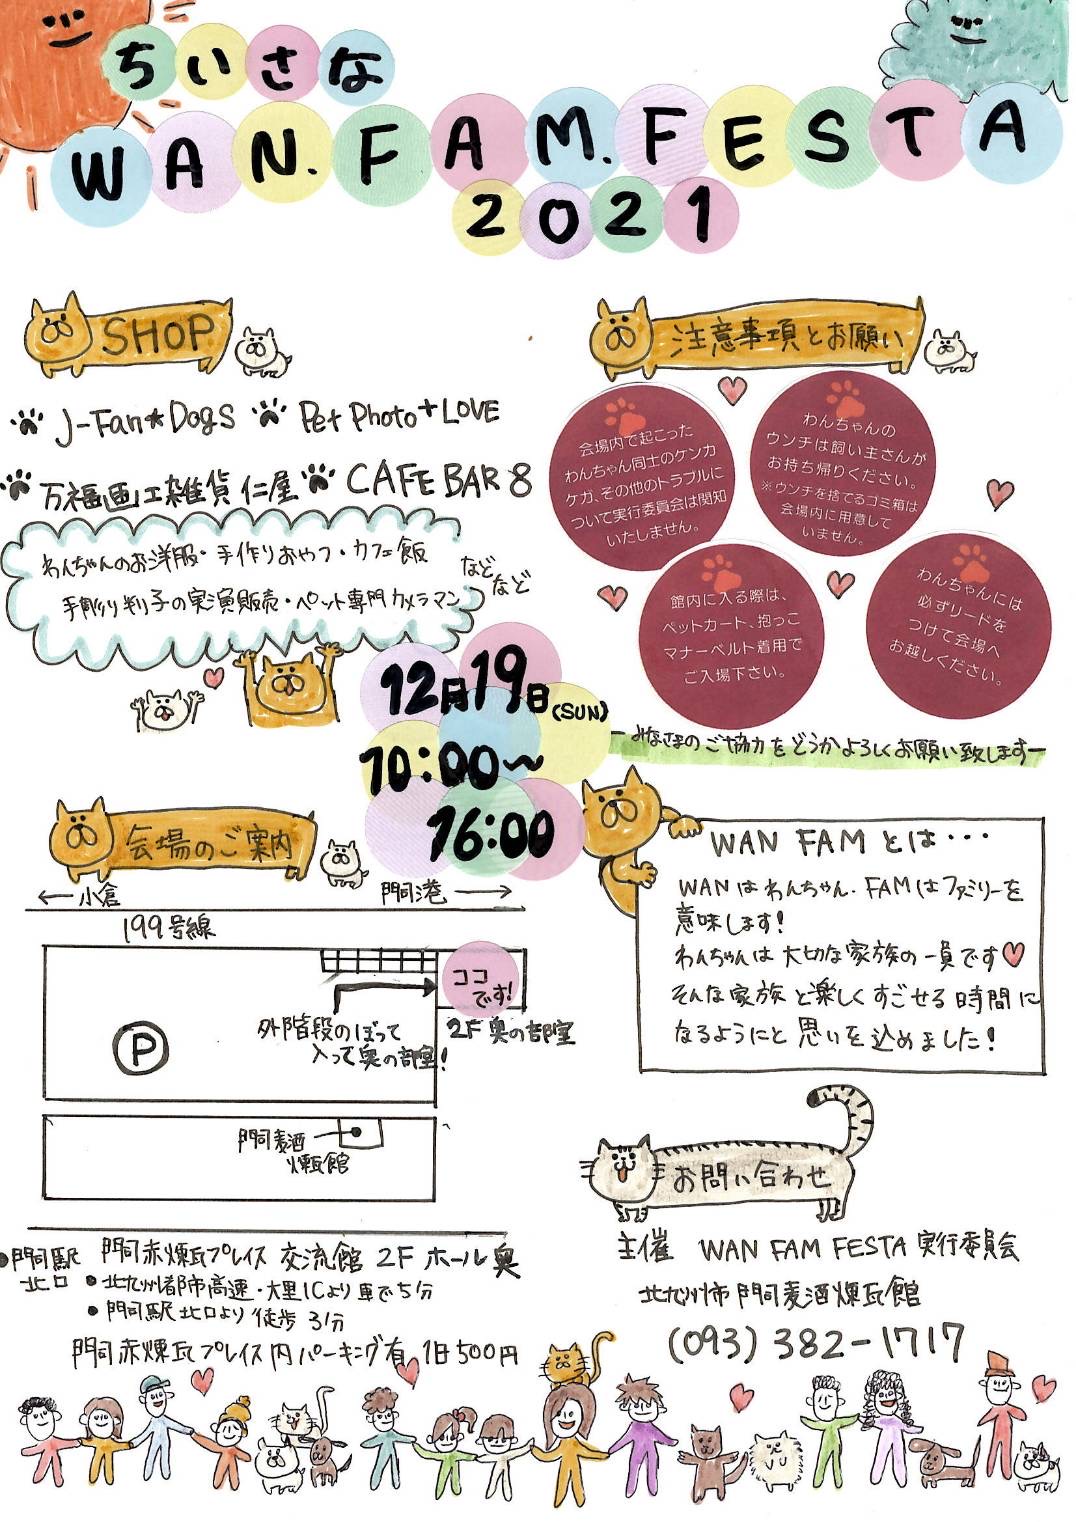 ちいさな
WAN.FAM.FESTA
2021
SHOP
J-Fan★Dogs
Pet Photo+LOVE
万福画工雑貨 仁屋
CAFE BAR 8
わんちゃんのお洋服・手作りおやつ・カフェ飯
手彫り判子の実演販売・ペット専門カメラマン
などなど
注意事項とお願い
会場内で起こった
わんちゃん同士のケンカ
ケガ、その他のトラブルに
ついて実行委員会は関知
いたしません。
わんちゃんの
ウンチは飼い主さんが
お持ち帰りください。
※ウンチを捨てるゴミ箱は
会場内に用意して
いません。
館内に入る際は、
ペットカート、抱っこ
マナーベルト着用で
ご入場下さい。
わんちゃんには
必ずリードを
つけて会場へ
お越しください。
ーみなさまのご協力をどうかよろしくお願い致しますー
12月19日(SUN)
10:00〜
16:00
会場のご案内
← 小倉
門司港 →
199号線
ココ
です!
2F 奥の部室
外階段のぼって
入って奥の部室!
P
門司麦酒
煉瓦館
●門司駅
北口
門司赤煉瓦プレイス 交流館 2F ホール奥
●北九州都市高速・大里ICより車で5分
●門司駅北口より徒歩3分
門司赤煉瓦プレイス内パーキング有 1日500円
WAN FAMとは・・・
WANはわんちゃん.FAMはファミリーを
意味します!
わんちゃんは大切な家族の一員です♥
そんな家族と楽しくすごせる時間に
なるようにと思いを込めました!
お問い合わせ
主催 WAN FAM FESTA 実行委員会
北九州市門司麦酒煉瓦館
(093)382-1717